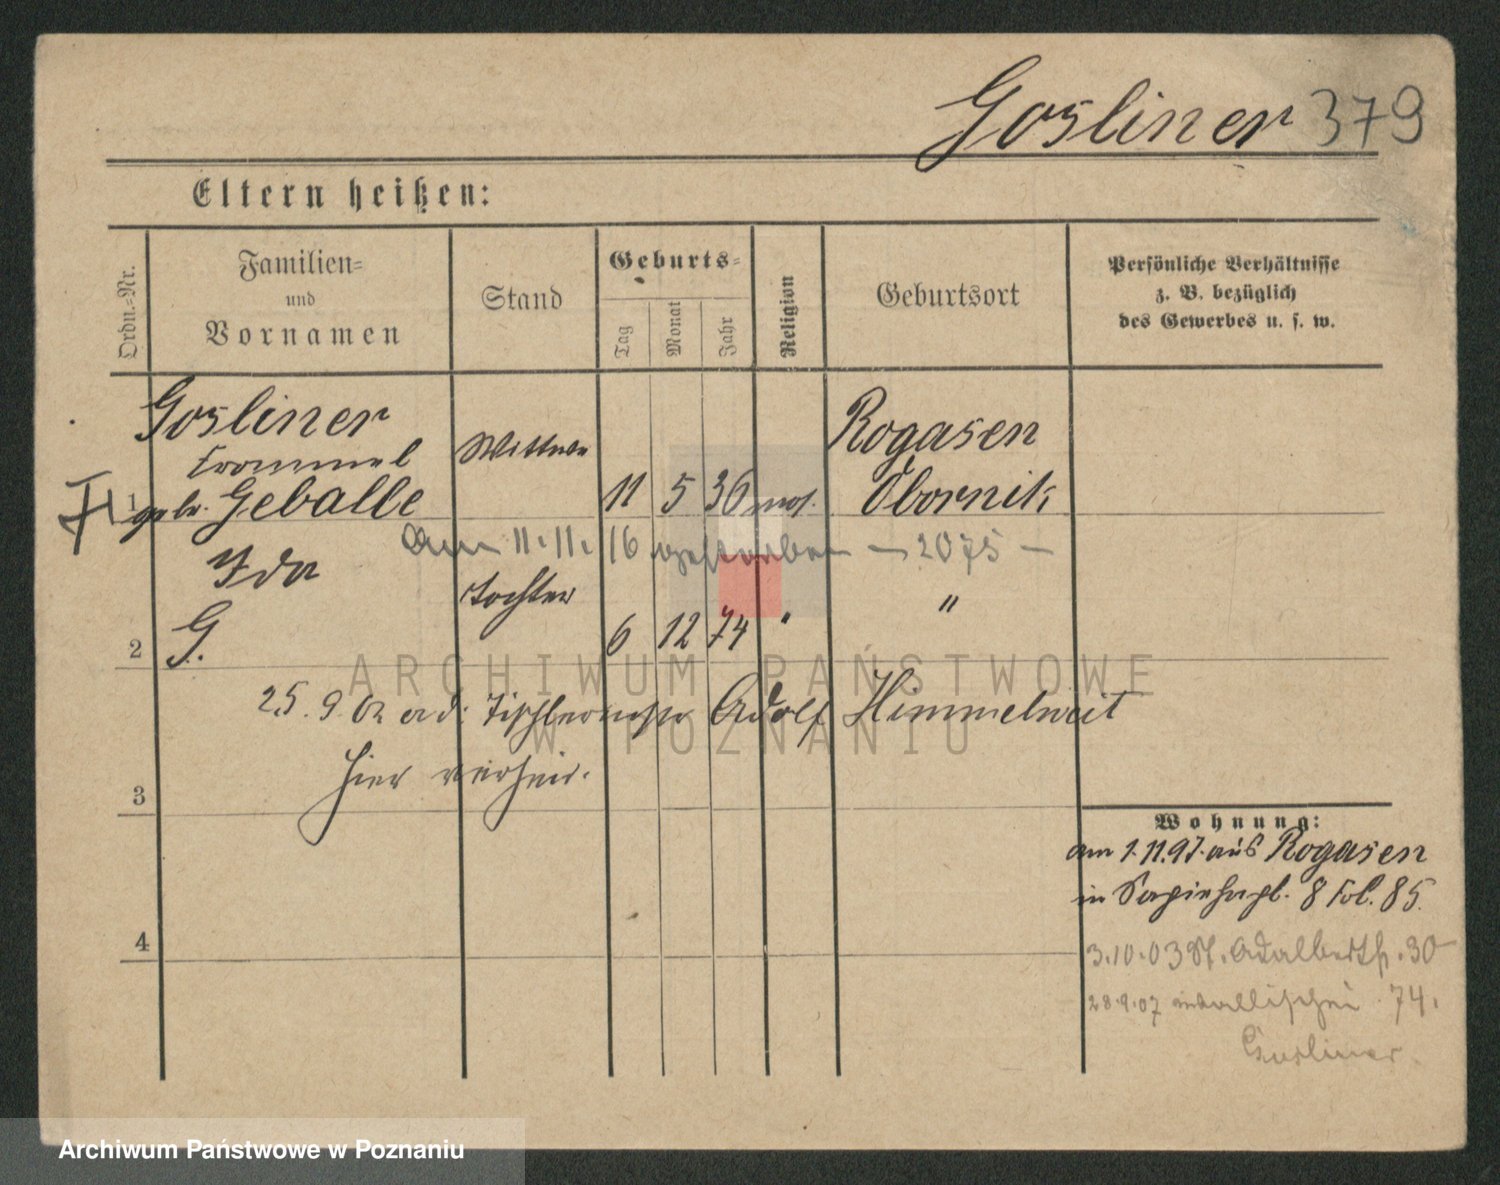 Gosliner 379
Eltern heißen:
Ordn.-Nr.
Familien-
und
Vornamen
Stand
Geburts-
Tag
Monat
Jahr
Religion
Geburtsort
Persönliche Verhältnisse
z. B. bezüglich
des Gewerbes u. s. w.
Gosliner Rogasen
Frommel Wittwe
1 geb. Geballe 11 5 36 mos. Obornik
am 11.11.16 gestorben — 2075 —
Ida Tochter "
2 G. 6 12 74 "
25.9.02 a. d. Tischlermstr Adolf Himmelweit
hier verheir.
3
4
Wohnung:
am 1.11.97. aus Rogasen
in 8 Fol. 85.
3.10.03 St. Adalbertst. 30
28.9.07 Wallischei 74.
Gosliner
ARCHIWUM PAŃSTWOWE
W POZNANIU
Archiwum Państwowe w Poznaniu